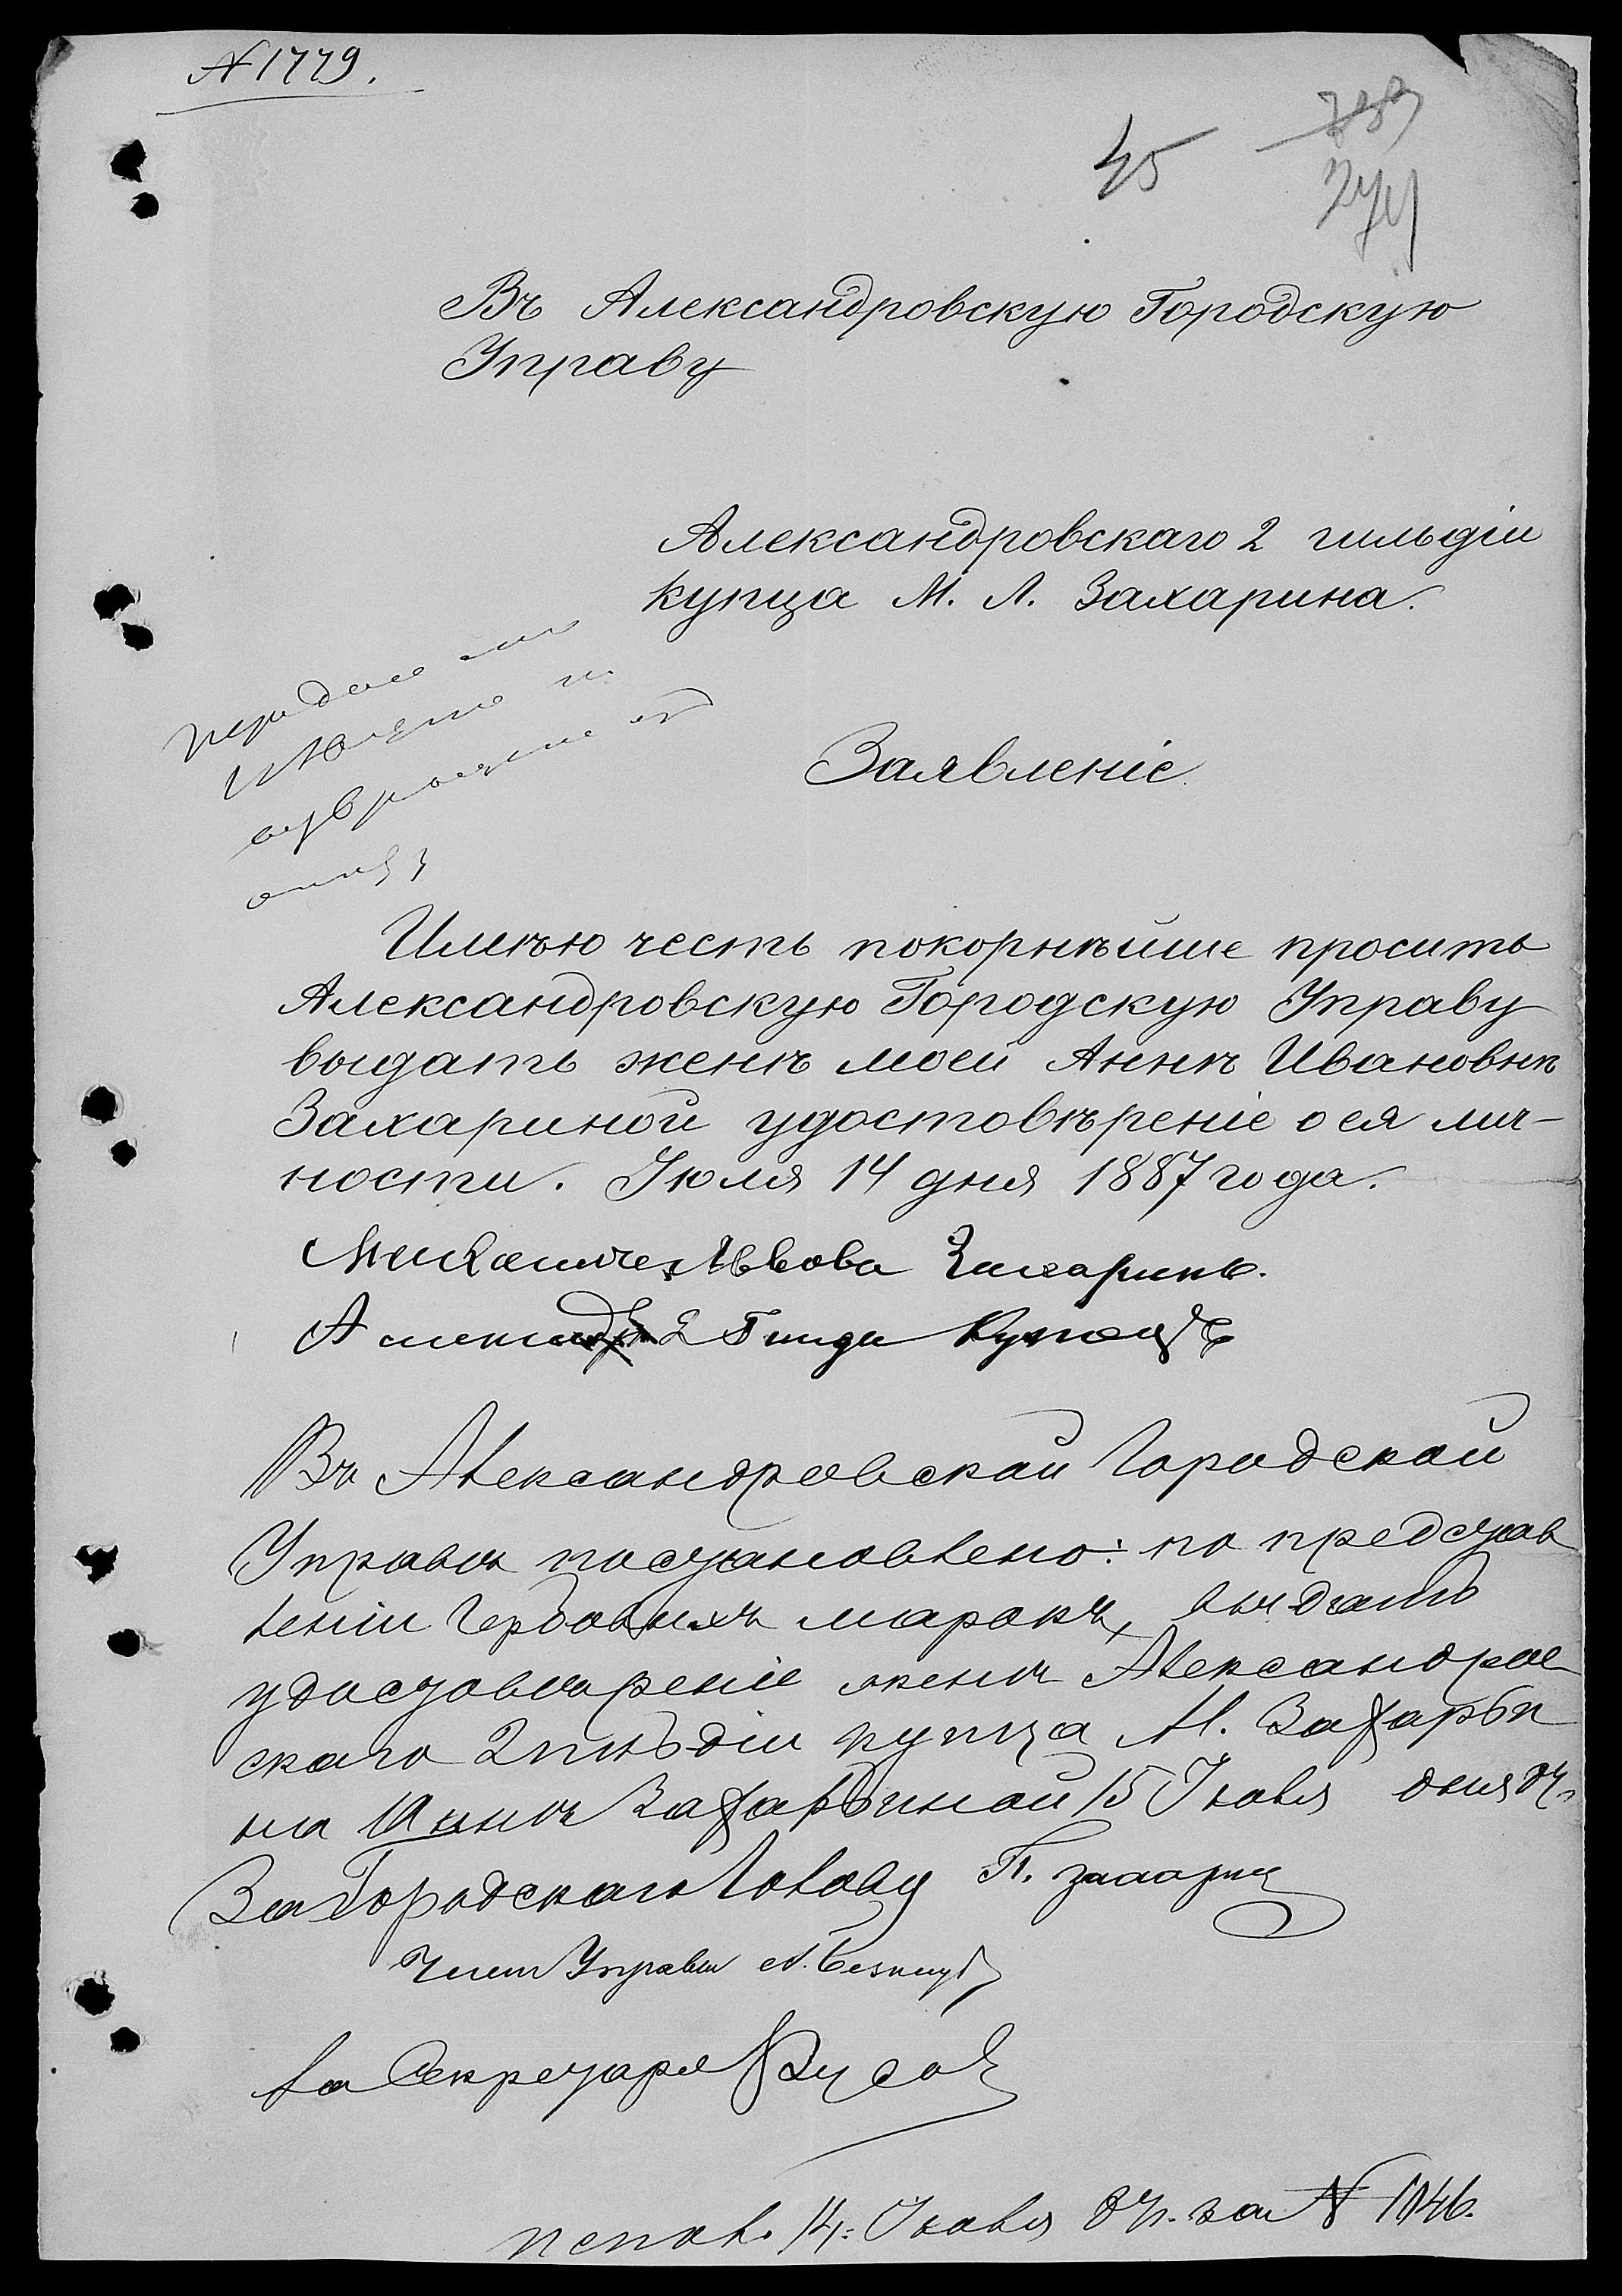 № 1779.
45
Въ Александровскую Городскую
Управу
Александровскаго 2 гильдіи
купца М. Л. Захарина.
Заявленіе.
Имѣю честь покорнѣйше просить
Александровскую Городскую Управу
выдать женѣ моей Аннѣ Ивановнѣ
Захариной удостовѣреніе о ея лич-
ности. Іюля 14 дня 1887 года.
Львова Захаринъ.
2 Купецъ
Въ Александровской Городской
Управѣ постановлено: по представ
леніи гербовыхъ марокъ, выдать
удостовѣреніе женѣ Александров
скаго 2 гильдіи купца М. Захарьи
на Аннѣ Захарьиной 15 Іюля дня 87 г.
За Городскаго Голову П.
Член Управы
За Секретаря
14 Іюля 87 г. за № 1046.